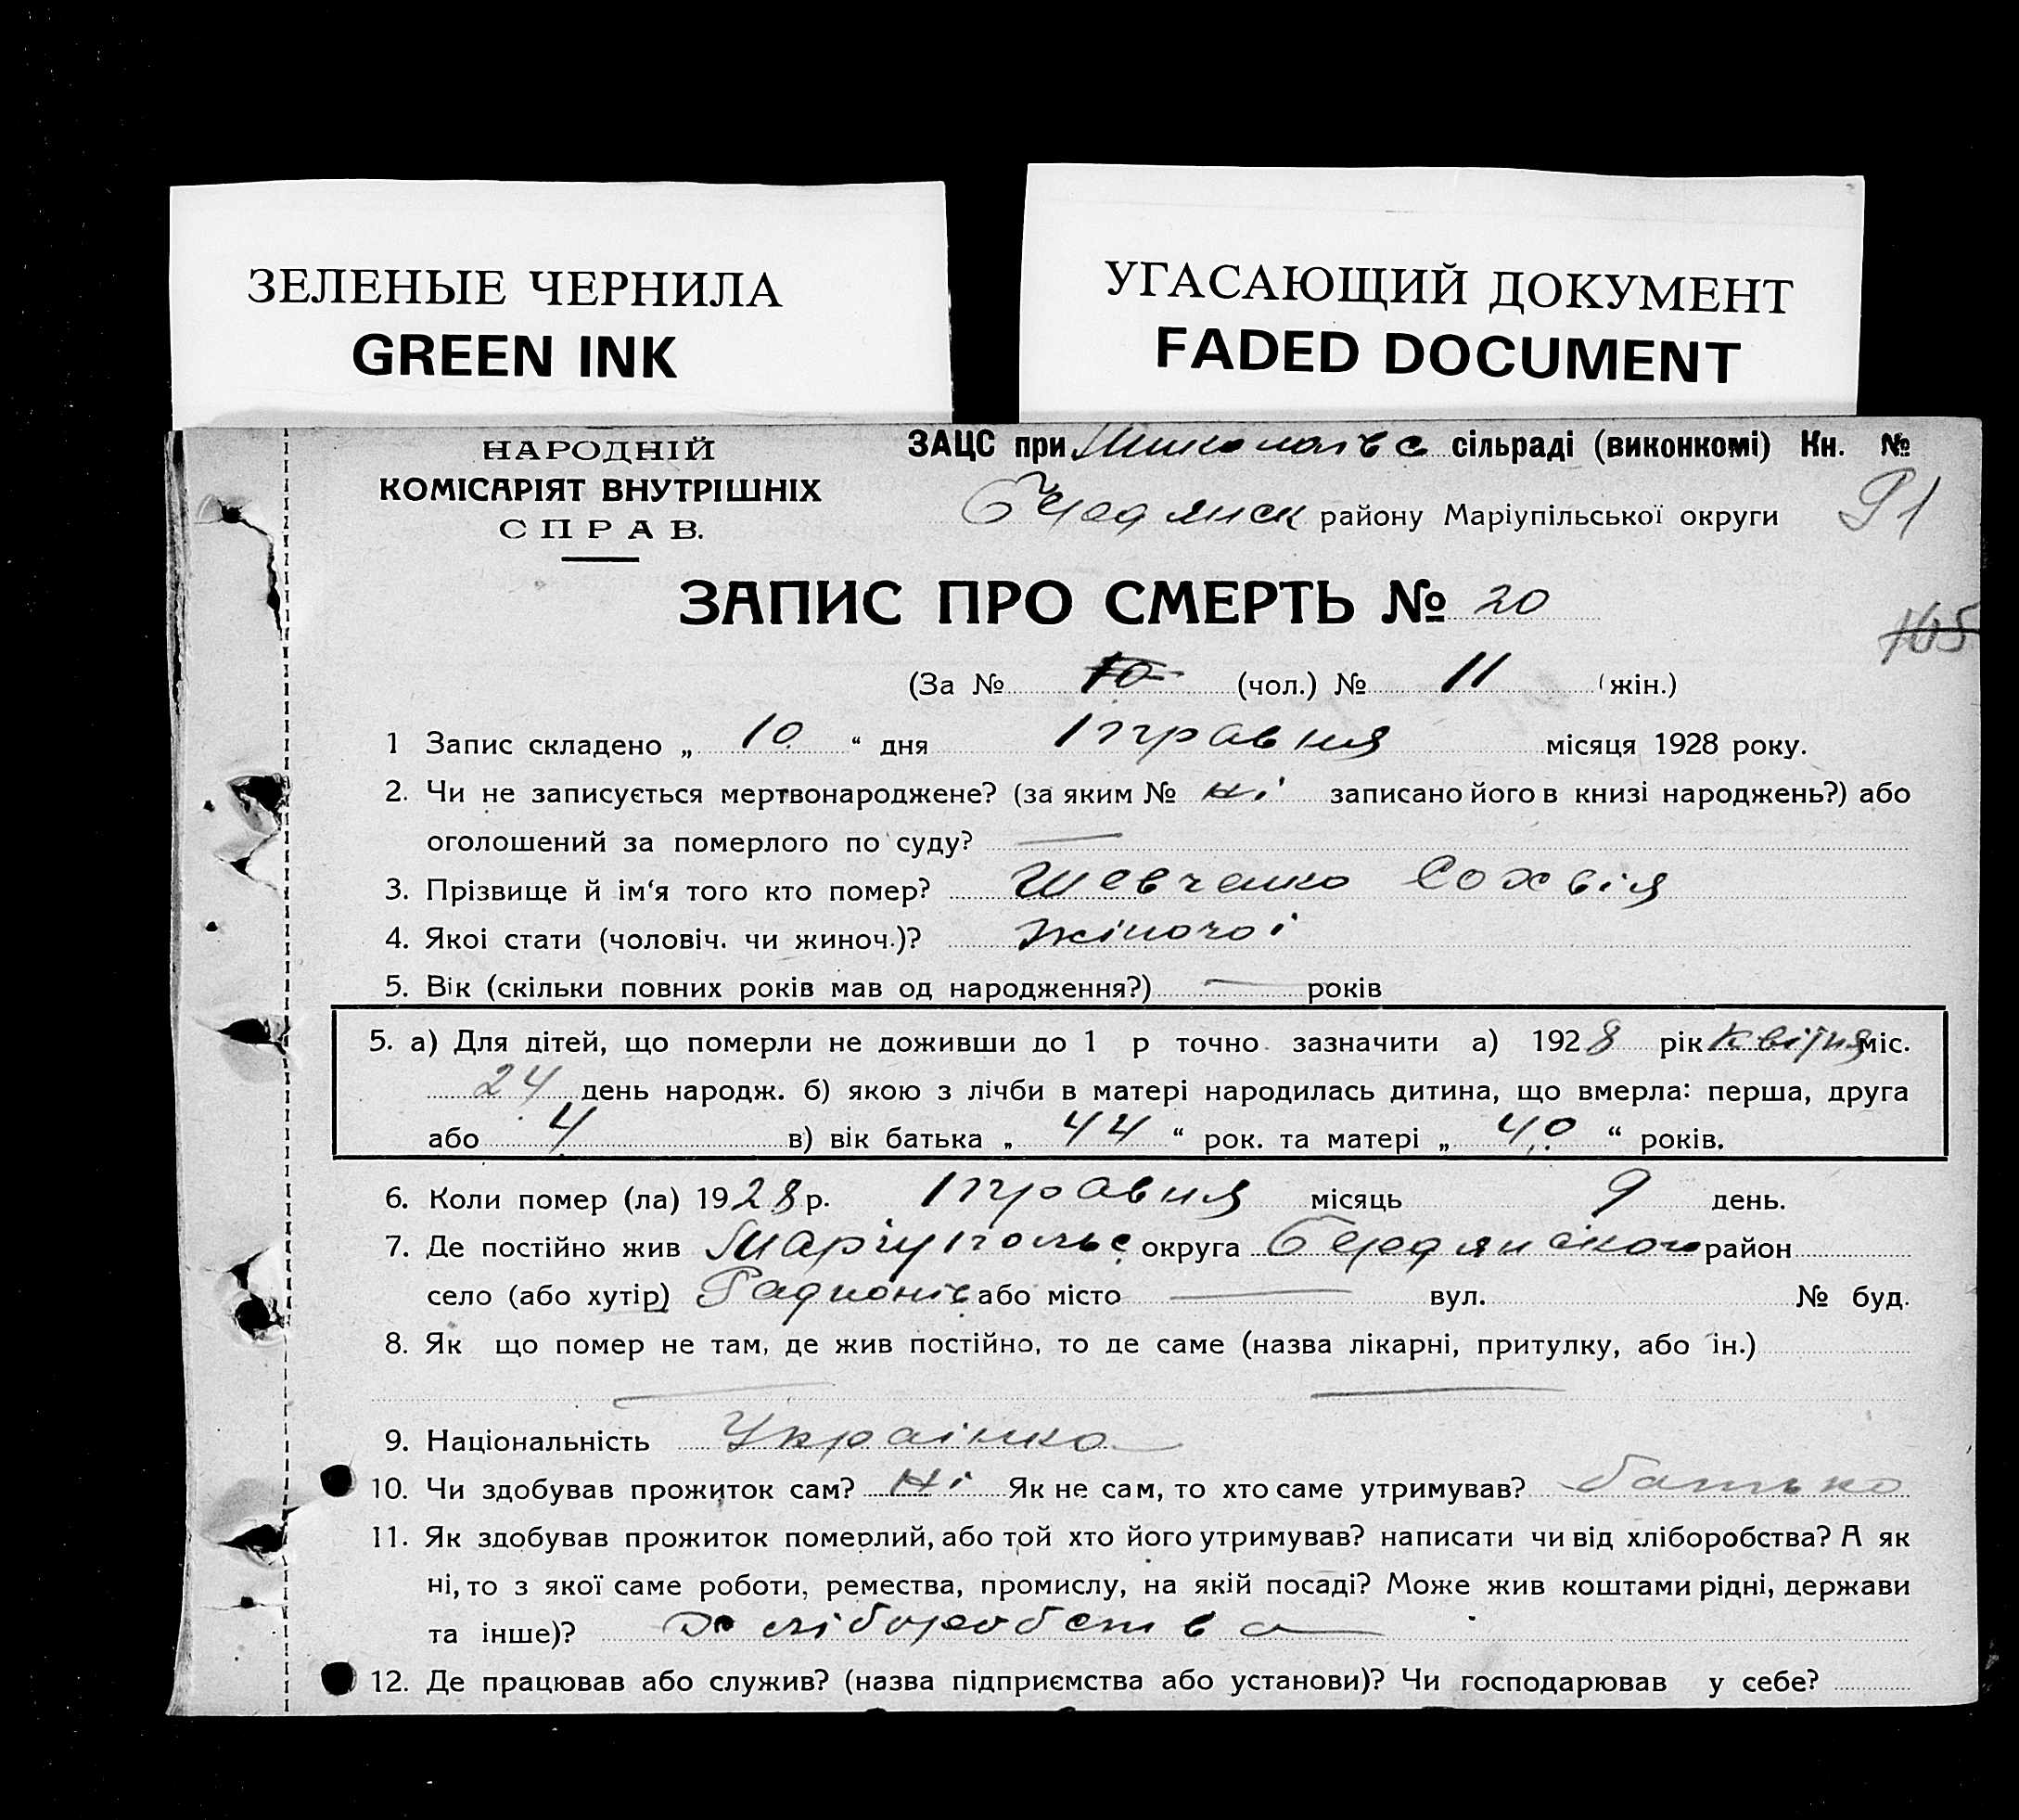 ЗЕЛЕНЫЕ ЧЕРНИЛА
GREEN INK
УГАСАЮЩИЙ ДОКУМЕНТ
FADED DOCUMENT
НАРОДНІЙ
КОМІСАРІЯТ ВНУТРІШНІХ
СПРАВ.
ЗАЦС при Миколаівс сільраді (виконкомі) Кн. №
Бердянск району Маріупільської округи
ЗАПИС ПРО СМЕРТЬ № 20
165
(За № 10 (чол.) № 11 (жін.)
1 Запис складено „ 10 “ дня травня місяця 1928 року.
2. Чи не записується мертвонароджене? (за яким № ні записано його в книзі народжень?) або
оголошений за померлого по суду? —
3. Прізвище й ім‘я того кто помер? Шевченко Сохвія
4. Якоі стати (чоловіч. чи жиноч.)? жіночоі
5. Вік (скільки повних років мав од народження?) — років
5. а) Для дітей, що померли не доживши до 1 р точно зазначити а) 1928 рік квітня міс.
24 день народж. б) якою з лічби в матері народилась дитина, що вмерла: перша, друга
або 4 в) вік батька „ 44 “ рок. та матері „ 40 “ років.
6. Коли помер (ла) 1928 р. травня місяць 9 день.
7. Де постійно жив Маріупольс округа Бердянського район
село (або хутір) Радионівс або місто — вул. № буд.
8. Як що помер не там, де жив постійно, то де саме (назва лікарні, притулку, або ін.)
— —
9. Національність Украінка
10. Чи здобував прожиток сам? Ні Як не сам, то хто саме утримував? батько
11. Як здобував прожиток померлий, або той хто його утримував? написати чи від хліборобства? А як
ні, то з якої саме роботи, ремества, промислу, на якій посаді? Може жив коштами рідні, держави
та інше)? хліборобства
12. Де працював або служив? (назва підприємства або установи)? Чи господарював у себе?